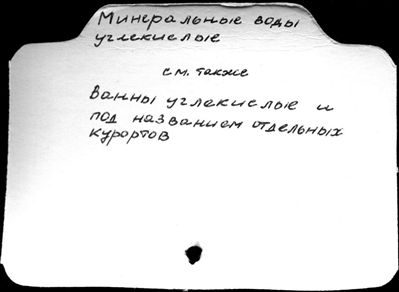 Минеральные воды
углекислые
см. также
Ванны углекислые и
под названием отдельных
курортов